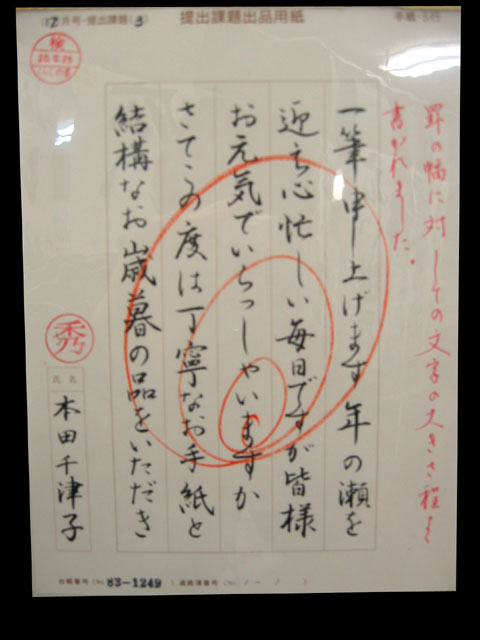 12月号・提出課題(3)
提出課題出品用紙
手紙・5行
検
罫の幅に対しての文字の大きさ程よく
書かれました。
一筆申し上げます年の瀬を
迎え心忙しい毎日ですが皆様
お元気でいらっしゃいますか
さてこの度は丁寧なお手紙と
結構なお歳暮の品をいただき
秀
氏名
本田千津子
会員番号(No. 83-1249)